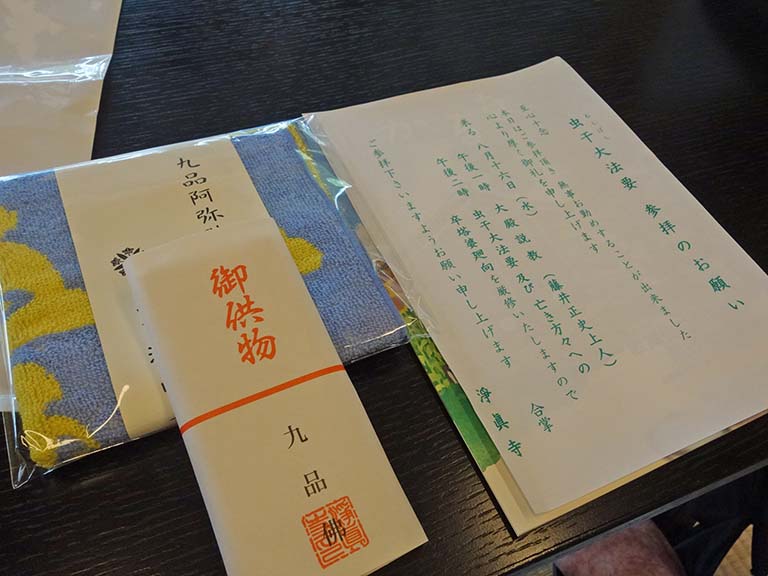 虫干大法要 参拝のお願い
至心十念
本日はご参拝頂き 無事お勤めすることが出来ました
心より厚く御礼を申し上げます
来る 八月十六日(水) 大殿説教 (藤井正史上人)
午後一時 虫干大法要及び亡き方々への
午後二時 卒塔婆廻向を厳修いたしますので
ご参拝下さいますようお願い申し上げます
合掌
淨眞寺
御供物
九品佛
九品阿弥